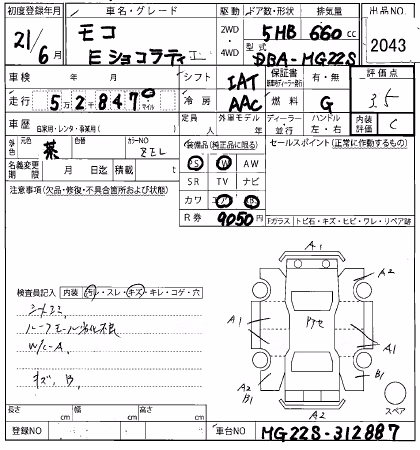 初度登録年月 車名・グレード 駆動 ドア数・形状 排気量 出品NO.
21/6月 モコ 2WD 5HB 660cc 2043
Eショコラティエ 4WD 型式 DBA-MG22S
車検 年 月 シフト IAT 保証書 有・無 評価点
走行 52847km マイル 冷房 AAC 燃料 G 3.5
車歴 自家用・レンタ・事業用( ) 定員 人 外車モデル 年 ディーラー・並行 ハンドル 左・右 内装評価 C
外色 元色 茶 色番 カラーNO ZEL 装備品(純正品に限る) セールスポイント(正常に作動するもの)
名義変更期限 月 日迄 積載 t PS PW AW
注意事項(欠品・修復・不具合箇所および状態) SR TV ナビ
カワ
R券 9050円 Fガラス トビ石・キズ・ヒビ・ワレ・リペア跡
A1
A2
検査員記入 内装 汚レ・スレ・キズ・キレ・コゲ・穴
A1 A1
W/C-A
キズ、B
A2 B1 B1
A2 スペア
長さ cm 幅 cm 高さ cm
登録NO 車台NO MG22S-312887